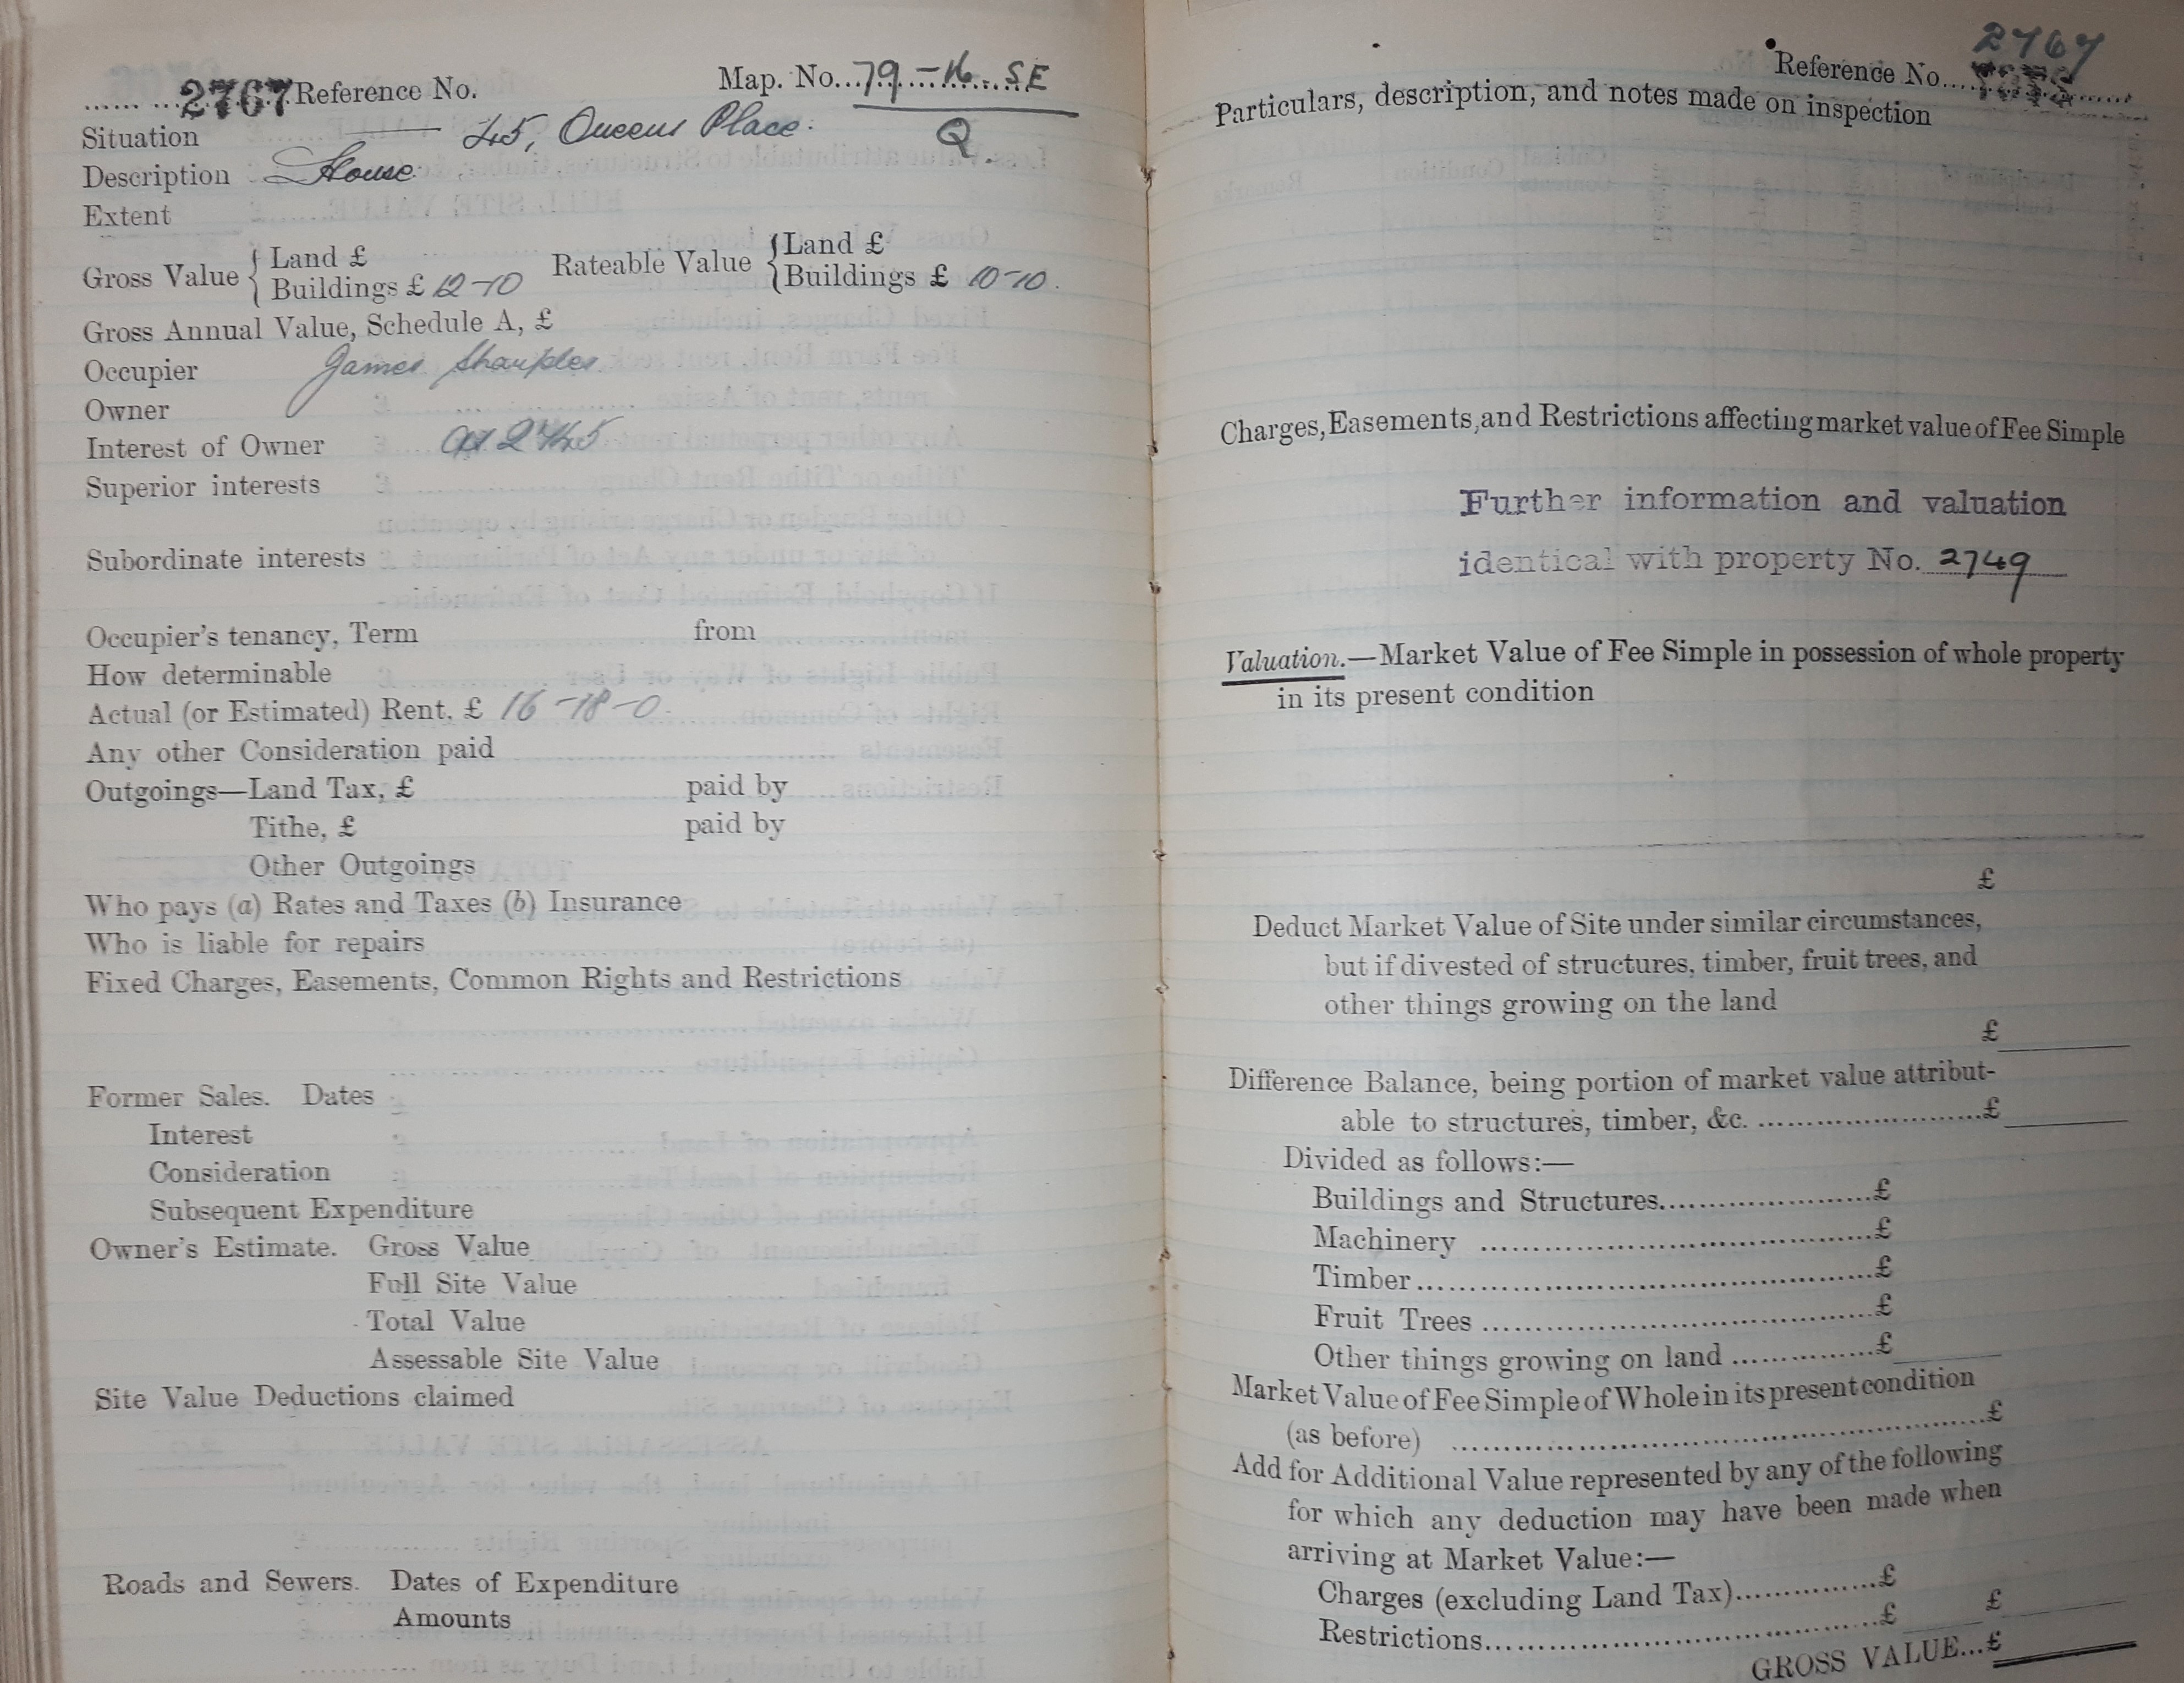 2767 Reference No. Map. No... 79-16. SE
Q.
Situation 45, Queens Place.
Description House.
Extent
Gross Value { Land £
Buildings £ 12-10
Rateable Value { Land £
Buildings £ 10-10.
Gross Annual Value, Schedule A, £
Occupier James Sharples.
Owner
Interest of Owner
Superior interests
Subordinate interests
Occupier's tenancy, Term from
How determinable
Actual (or Estimated) Rent, £ 16-18-0.
Any other Consideration paid
Outgoings—Land Tax, £ paid by
Tithe, £ paid by
Other Outgoings
Who pays (a) Rates and Taxes (b) Insurance
Who is liable for repairs
Fixed Charges, Easements, Common Rights and Restrictions
Former Sales. Dates
Interest
Consideration
Subsequent Expenditure
Owner's Estimate. Gross Value
Full Site Value
Total Value
Assessable Site Value
Site Value Deductions claimed
Roads and Sewers. Dates of Expenditure
Amounts
2767
Reference No.
Particulars, description, and notes made on inspection
Charges, Easements, and Restrictions affecting market value of Fee Simple
Further information and valuation
identical with property No. 2749
Valuation.—Market Value of Fee Simple in possession of whole property
in its present condition
£
Deduct Market Value of Site under similar circumstances,
but if divested of structures, timber, fruit trees, and
other things growing on the land
£
Difference Balance, being portion of market value attribut-
able to structures, timber, &c. ........................£
Divided as follows:—
Buildings and Structures......................£
Machinery ......................................£
Timber..............................................£
Fruit Trees .......................................£
Other things growing on land ...............£
Market Value of Fee Simple of Whole in its present condition
(as before) ......................................................£
Add for Additional Value represented by any of the following
for which any deduction may have been made when
arriving at Market Value:—
Charges (excluding Land Tax)...............£
Restrictions.......................................£ £
GROSS VALUE...£